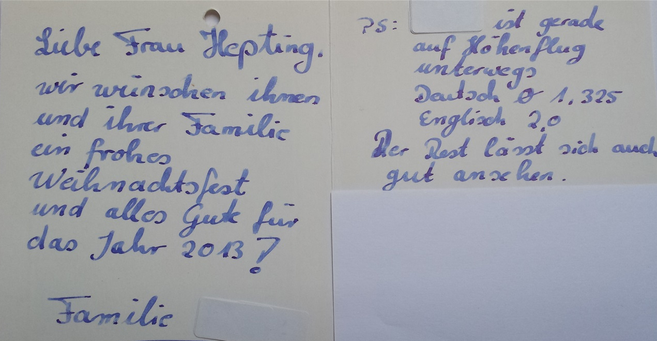 Liebe Frau Hepting.
wir wünschen ihnen
und ihrer Familie
ein frohes
Weihnachtsfest
und alles Gute für
das Jahr 2013!
Familie
PS: ist gerade
auf Höhenflug
unterwegs
Deutsch Ø 1,325
Englisch 2,0
Der Rest lässt sich auch
gut ansehen.